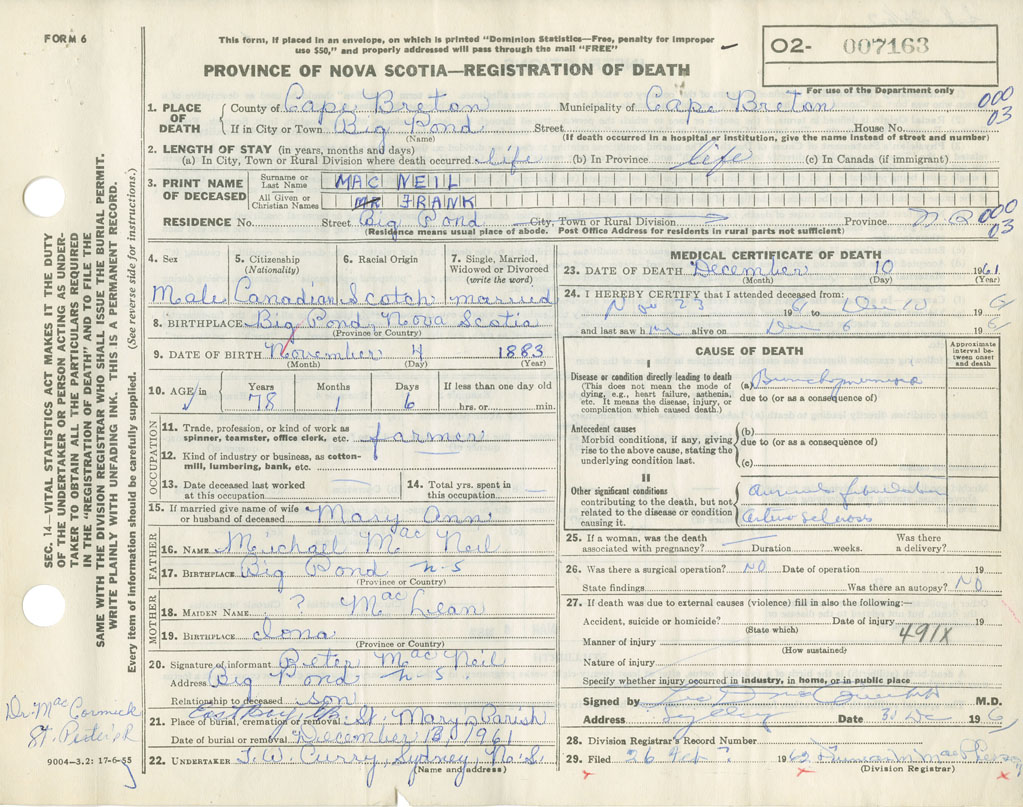 FORM 6
This form, if placed in an envelope, on which is printed "Dominion Statistics—Free, penalty for improper
use $50," and properly addressed will pass through the mail "FREE"
O2- 007163
For use of the Department only
PROVINCE OF NOVA SCOTIA—REGISTRATION OF DEATH
1. PLACE OF DEATH County of Cape Breton Municipality of Cape Breton 000 03
If in City or Town Big Pond Street House No.
(Name) (If death occurred in a hospital or institution, give the name instead of street and number)
2. LENGTH OF STAY (in years, months and days)
(a) In City, Town or Rural Division where death occurred life (b) In Province life (c) In Canada (if immigrant)
3. PRINT NAME OF DECEASED
Surname or Last Name MAC NEIL
All Given or Christian Names FRANK
RESIDENCE No. Street Big Pond City, Town or Rural Division Province N.S. 000 03
(Residence means usual place of abode. Post Office Address for residents in rural parts not sufficient)
4. Sex 5. Citizenship (Nationality) 6. Racial Origin 7. Single, Married, Widowed or Divorced (write the word)
Male Canadian Scotch married
8. BIRTHPLACE Big Pond, Nova Scotia
(Province or Country)
9. DATE OF BIRTH November 4 1883
(Month) (Day) (Year)
10. AGE in Years Months Days If less than one day old
78 1 6 hrs. or min.
OCCUPATION
11. Trade, profession, or kind of work as spinner, teamster, office clerk, etc. farmer
12. Kind of industry or business, as cotton-mill, lumbering, bank, etc.
13. Date deceased last worked at this occupation — 14. Total yrs. spent in this occupation —
15. If married give name of wife or husband of deceased Mary Ann
FATHER
16. NAME Michael Mac Neil
17. BIRTHPLACE Big Pond N-S
(Province or Country)
MOTHER
18. MAIDEN NAME ? Mac Lean
19. BIRTHPLACE Iona
(Province or Country)
20. Signature of informant Peter Mac Neil
Address Big Pond N-S.
Relationship to deceased son
21. Place of burial, cremation or removal East Bay St. Mary's Parish
Date of burial or removal December 13, 1961
22. UNDERTAKER T. W. Curry, Sydney, N.S.
(Name and address)
MEDICAL CERTIFICATE OF DEATH
23. DATE OF DEATH December 10 1961
(Month) (Day) (Year)
24. I HEREBY CERTIFY that I attended deceased from:
Nov 23 196 to Dec 10 196
and last saw him alive on Dec 6 196
CAUSE OF DEATH
Approximate interval between onset and death
I
Disease or condition directly leading to death
(This does not mean the mode of dying, e.g., heart failure, asthenia, etc. It means the disease, injury, or complication which caused death.)
(a) Bronchopneumonia
due to (or as a consequence of)
Antecedent causes
Morbid conditions, if any, giving rise to the above cause, stating the underlying condition last.
(b)
due to (or as a consequence of)
(c)
II
Other significant conditions
contributing to the death, but not related to the disease or condition causing it.
auricular fibrillation
arteriosclerosis
25. If a woman, was the death associated with pregnancy? Duration weeks. Was there a delivery?
26. Was there a surgical operation? NO Date of operation 19
State findings Was there an autopsy? NO
27. If death was due to external causes (violence) fill in also the following:—
Accident, suicide or homicide? Date of injury 19
(State which) 491X
Manner of injury
(How sustained)
Nature of injury
Specify whether injury occurred in industry, in home, or in public place
Signed by M.D.
Address Sydney Date 31 Dec 196
28. Division Registrar's Record Number
29. Filed 26 1962
(Division Registrar)
SEC. 14 VITAL STATISTICS ACT MAKES IT THE DUTY
OF THE UNDERTAKER OR PERSON ACTING AS UNDER-
TAKER TO OBTAIN ALL THE PARTICULARS REQUIRED
IN THE "REGISTRATION OF DEATH" AND TO FILE THE
SAME WITH THE DIVISION REGISTRAR WHO SHALL ISSUE THE BURIAL PERMIT.
WRITE PLAINLY WITH UNFADING INK. THIS IS A PERMANENT RECORD.
Every item of information should be carefully supplied. (See reverse side for instructions.)
Dr. Mac Cormick
St. Peter's
9004-3.2: 17-6-55